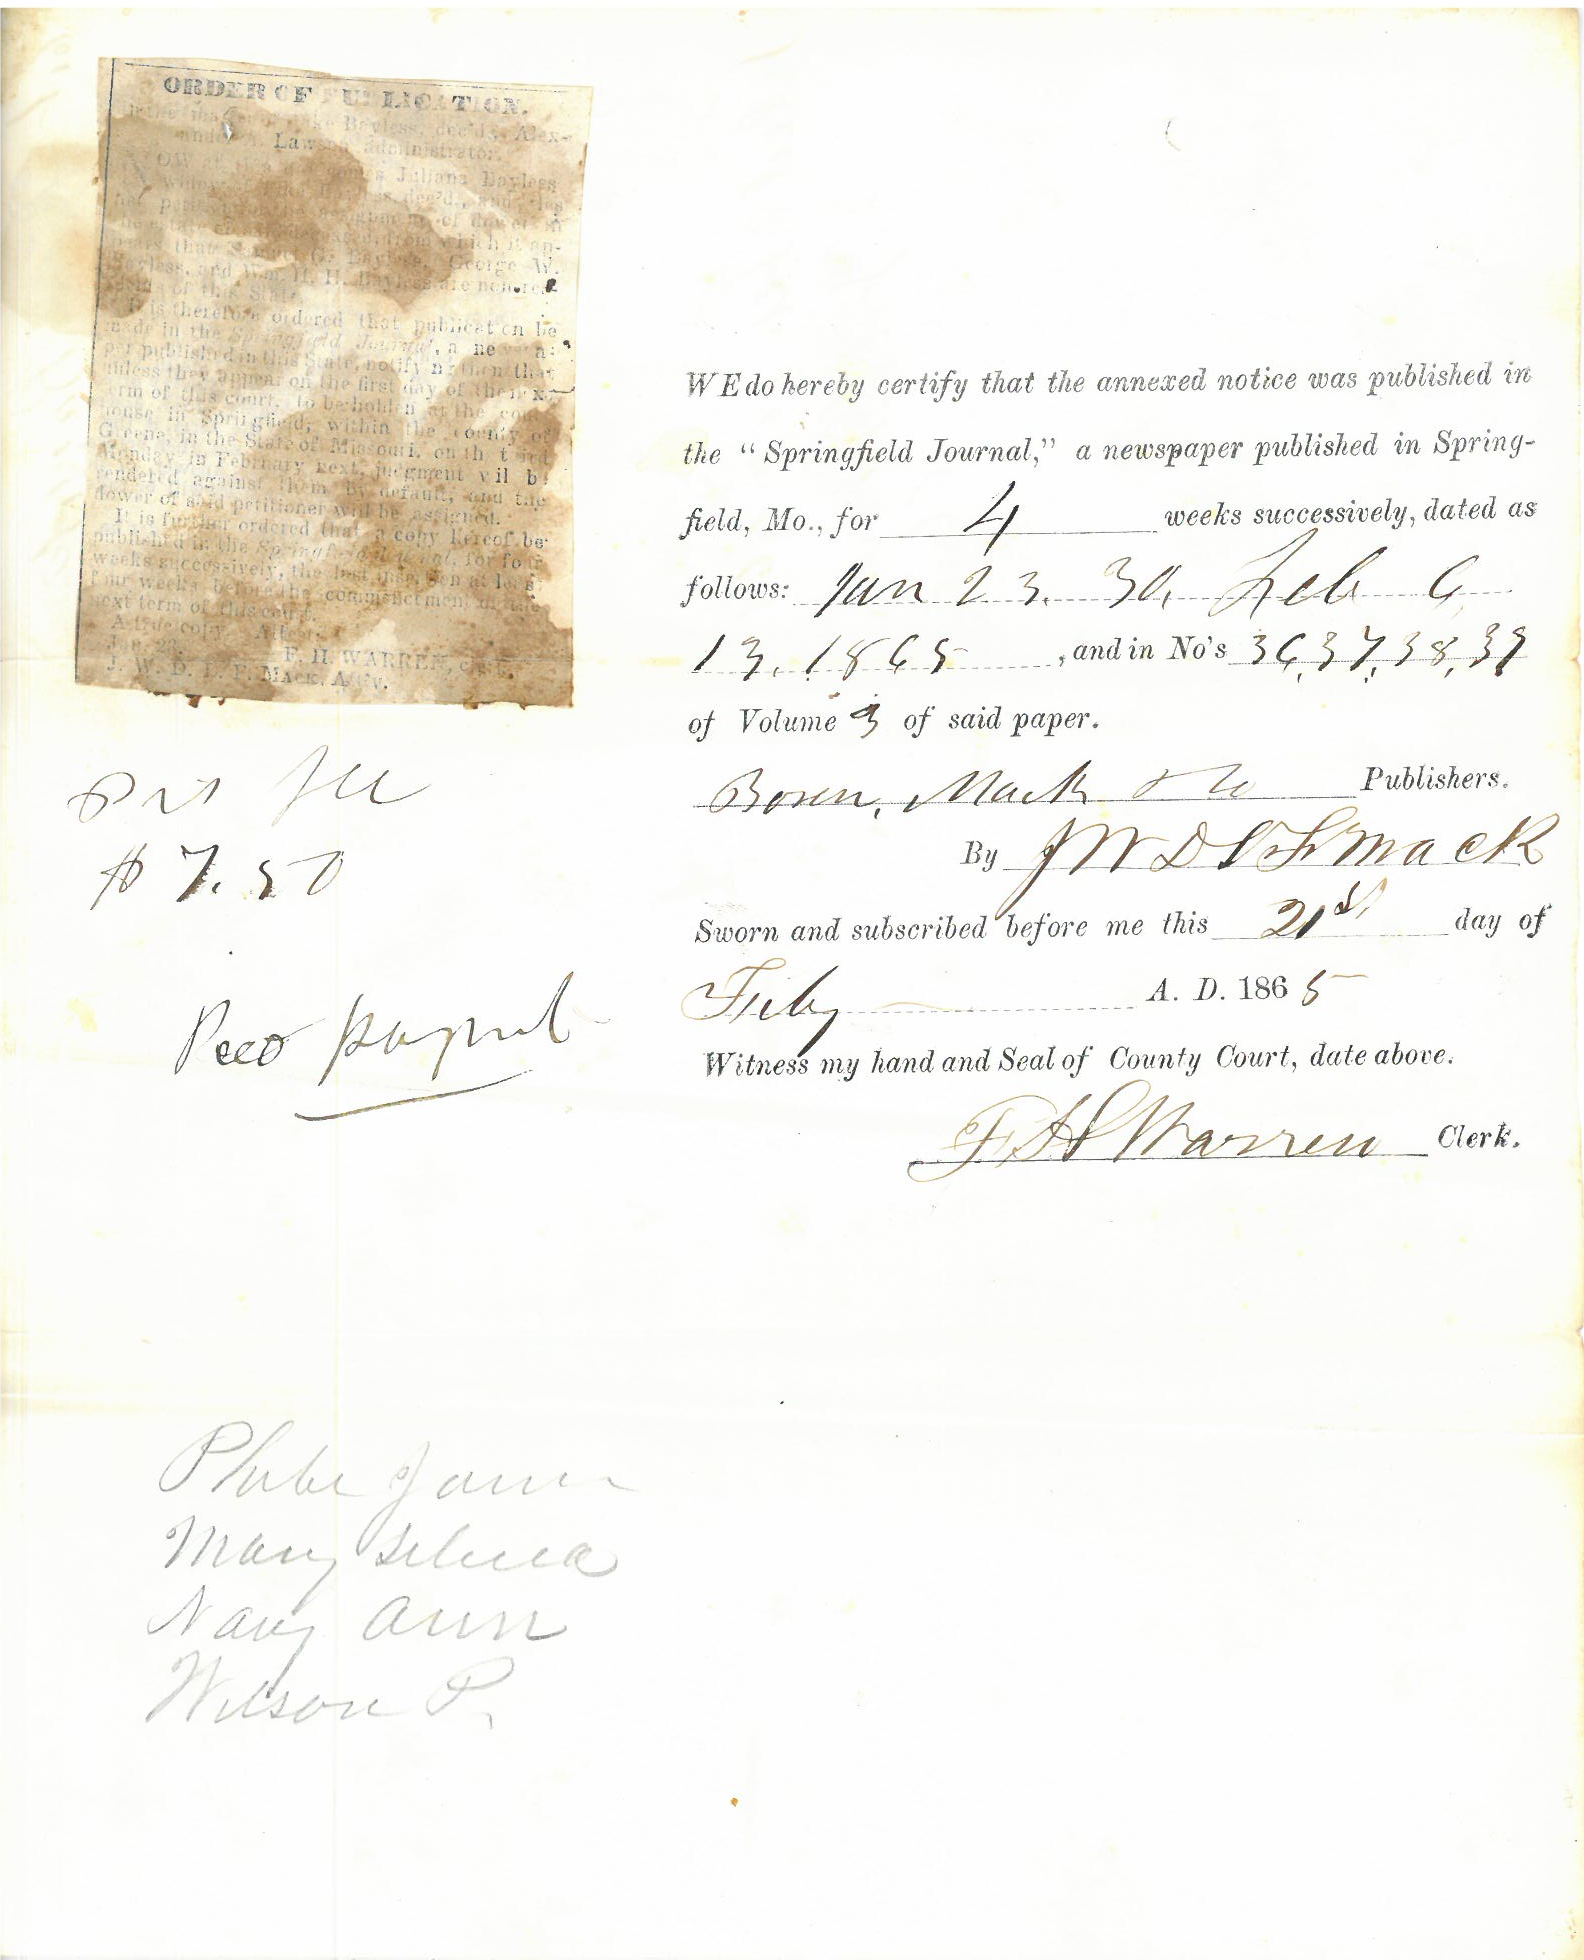 ORDER OF PUBLICATION.
Bayless, dec'd, Alex-
Lawson administrator.
Juliana Bayless
dec'd, and
of dower in
from which it ap-
pears that G. Bayless, George W.
Bayless, and Wm. H. H. Bayless are non-resi-
of this State.
It is therefore ordered that publication be
made in the Springfield Journal, a
per published in this State, notifying them that
unless they appear on the first day of the next
term of this court, to be holden at the court
house in Springfield, within the county of
Greene, in the State of Missouri, on the third
Monday in February next, judgment will be
rendered against them by default, and the
dower of said petitioner will be assigned.
It is further ordered that a copy hereof be
published in the Springfield Journal, for four
weeks successively, the last insertion at least
four weeks before the commencement of the
next term of this court.
A true copy. Attest:
Jan. 23. F. H. WARREN, Clerk.
J. W. D. L. F. MACK, Att'y.
WE do hereby certify that the annexed notice was published in
the "Springfield Journal," a newspaper published in Spring-
field, Mo., for 4 weeks successively, dated as
follows: Jan 23. 30, Feb 6
13. 1865, and in No's 36, 37, 38, 39
of Volume 3 of said paper.
Boren, Mack & Co Publishers.
By J W D L F Mack
Sworn and subscribed before me this 21st day of
Feby A. D. 1865
Witness my hand and Seal of County Court, date above.
F. H. Warren Clerk.
Prt fee
$7.50
Recd payment
Phebe Jane
Mary
Nancy Ann
Wilson P.